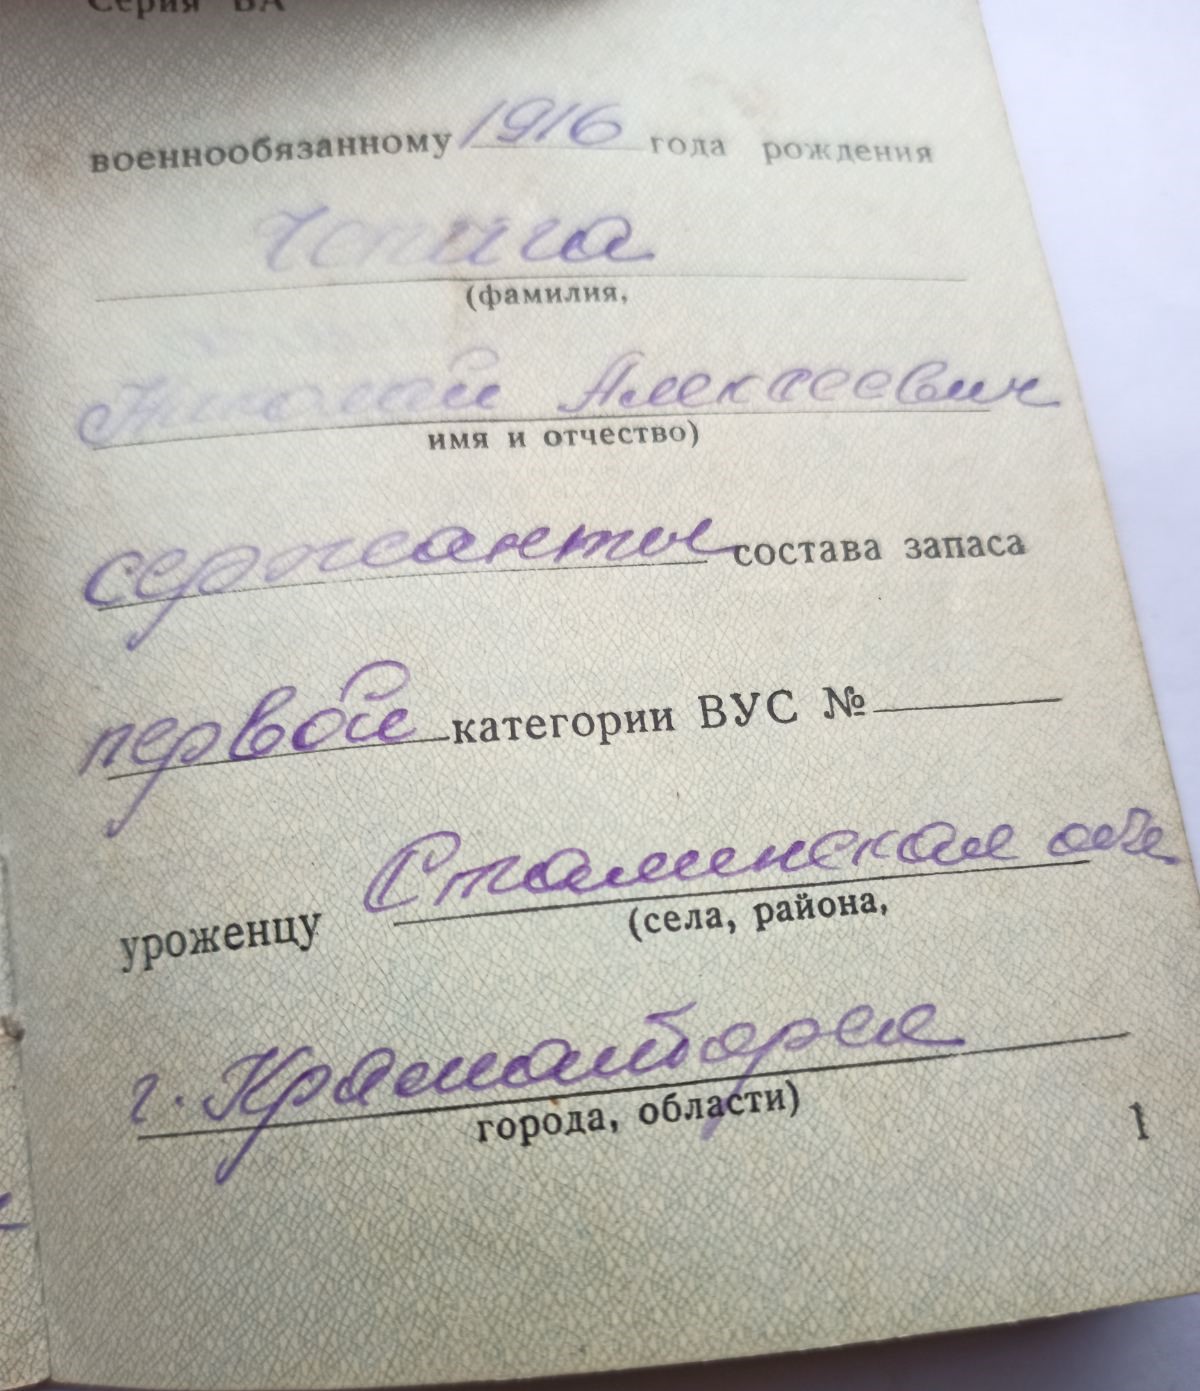 Серия ВА
военнообязанному 1916 года рождения
Чепига
(фамилия,
Николай Алексеевич
имя и отчество)
сержанты состава запаса
первой категории ВУС №
уроженцу Сталинская обл
(села, района,
г. Краматорск
города, области)
1